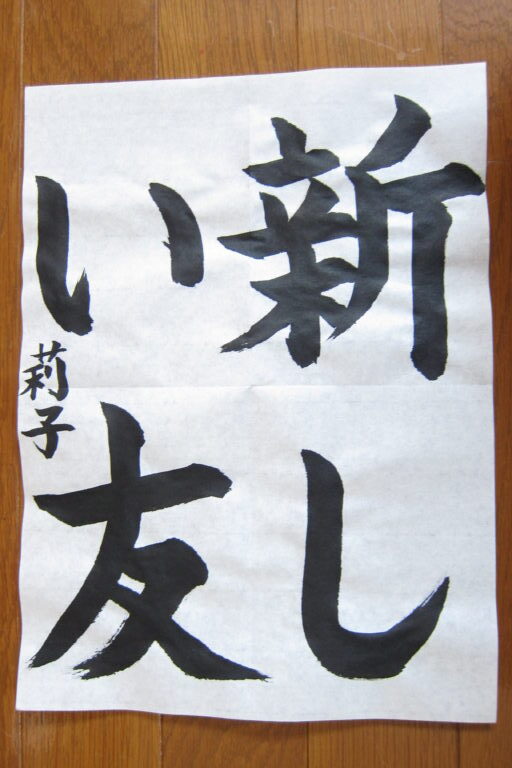 新し
い友
莉子